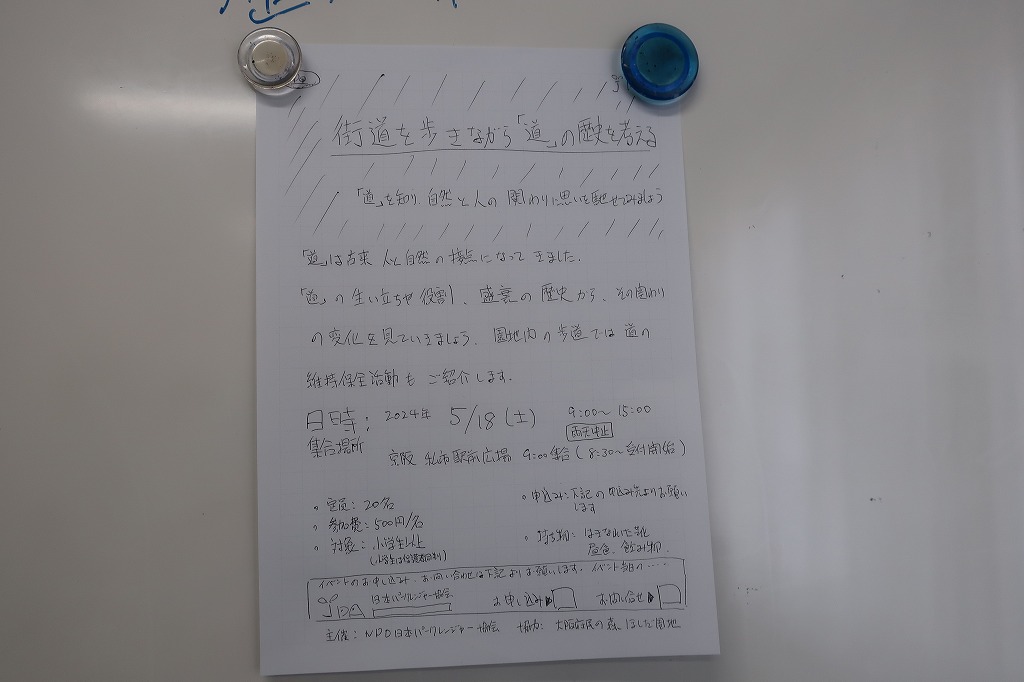 街道を歩きながら「道」の歴史を考える
「道」を知り、自然と人の関わりに思いを馳せてみましょう
「道」は古来 人と自然の接点になってきました.
「道」の生い立ちや役割、盛衰の歴史から、その関わり
の変化を見ていきましょう. 園地内の歩道では道の
維持保全活動もご紹介します.
日時: 2024年 5/18(土) 9:00~15:00
雨天中止
集合場所 京阪 私市駅前広場 9:00集合(8:30~受付開始)
・定員: 20名
・参加費: 500円/名
・対象: 小学生以上
(小学生は保護者同伴)
・申込み: 下記の申込み先よりお願い
します
・持ち物: はきなれた靴
昼食、飲み物.
イベントのお申し込み、お問い合わせは下記よりお願いします. イベント当日の・・・・
JPA 日本パークレンジャー協会 お申し込み▶ お問い合せ▶
主催: NPO日本パークレンジャー協会 協力: 大阪府民の森 ほしだ園地